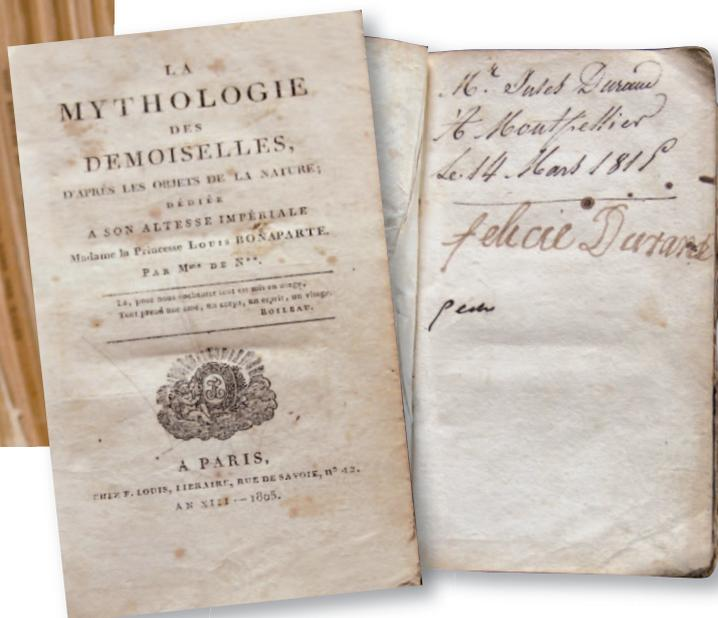 LA
MYTHOLOGIE
DES
DEMOISELLES,
D'APRÈS LES OBJETS DE LA NATURE;
DÉDIÉE
A SON ALTESSE IMPÉRIALE
Madame la Princesse LOUIS BONAPARTE.
PAR Mme DE N**.
Là, pour nous enchanter tout est mis en usage,
Tout prend une ame, un corps, un esprit, un visage.
BOILEAU.
A PARIS,
CHEZ F. LOUIS, LIBRAIRE, RUE DE SAVOIE, n° 12.
AN XIII — 1805.
Mr Jules Durand
A Montpellier
Le 14 Mars 1815
felicie Durand